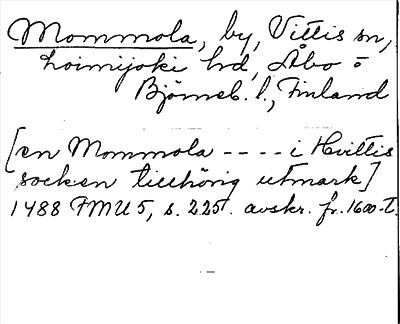 Mommola, by, Vittis sn,
Loimijoki hd, Åbo o
Björneb. l., Finland
[en Mommola ---- i Hvittis
socken tillhörig utmark]
1488 FMU 5, s. 225. avskr. fr. 1600-t.